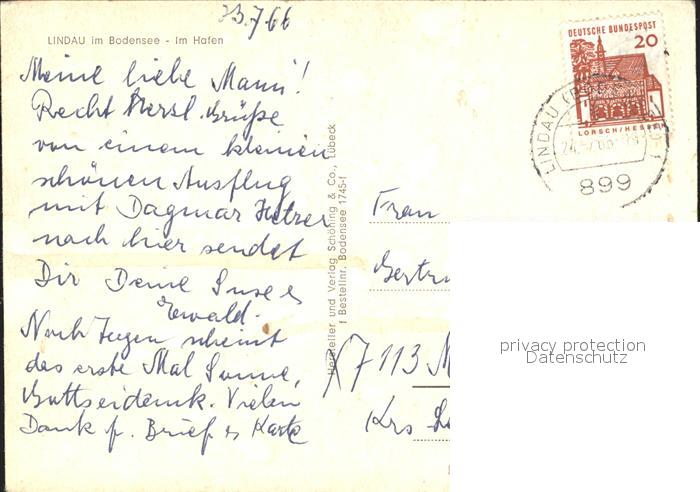 23.7.66
LINDAU im Bodensee - Im Hafen
Meine liebe Mami!
Recht herzl. Grüße
von einem kleinen
schönen Ausflug
mit Dagmar
nach hier sendet
Dir Deine Suse
Ewald.
Nach Regen scheint
das erste Mal Sonne,
Gottseidank. Vielen
Dank f. Brief u Karte
Hersteller und Verlag Schöning & Co., Lübeck
f Bestellnr. Bodensee 1745-f
DEUTSCHE BUNDESPOST
20
LORSCH/HESSEN
LINDAU
899
Frau
Gertru
7113
Krs
privacy protection
Datenschutz